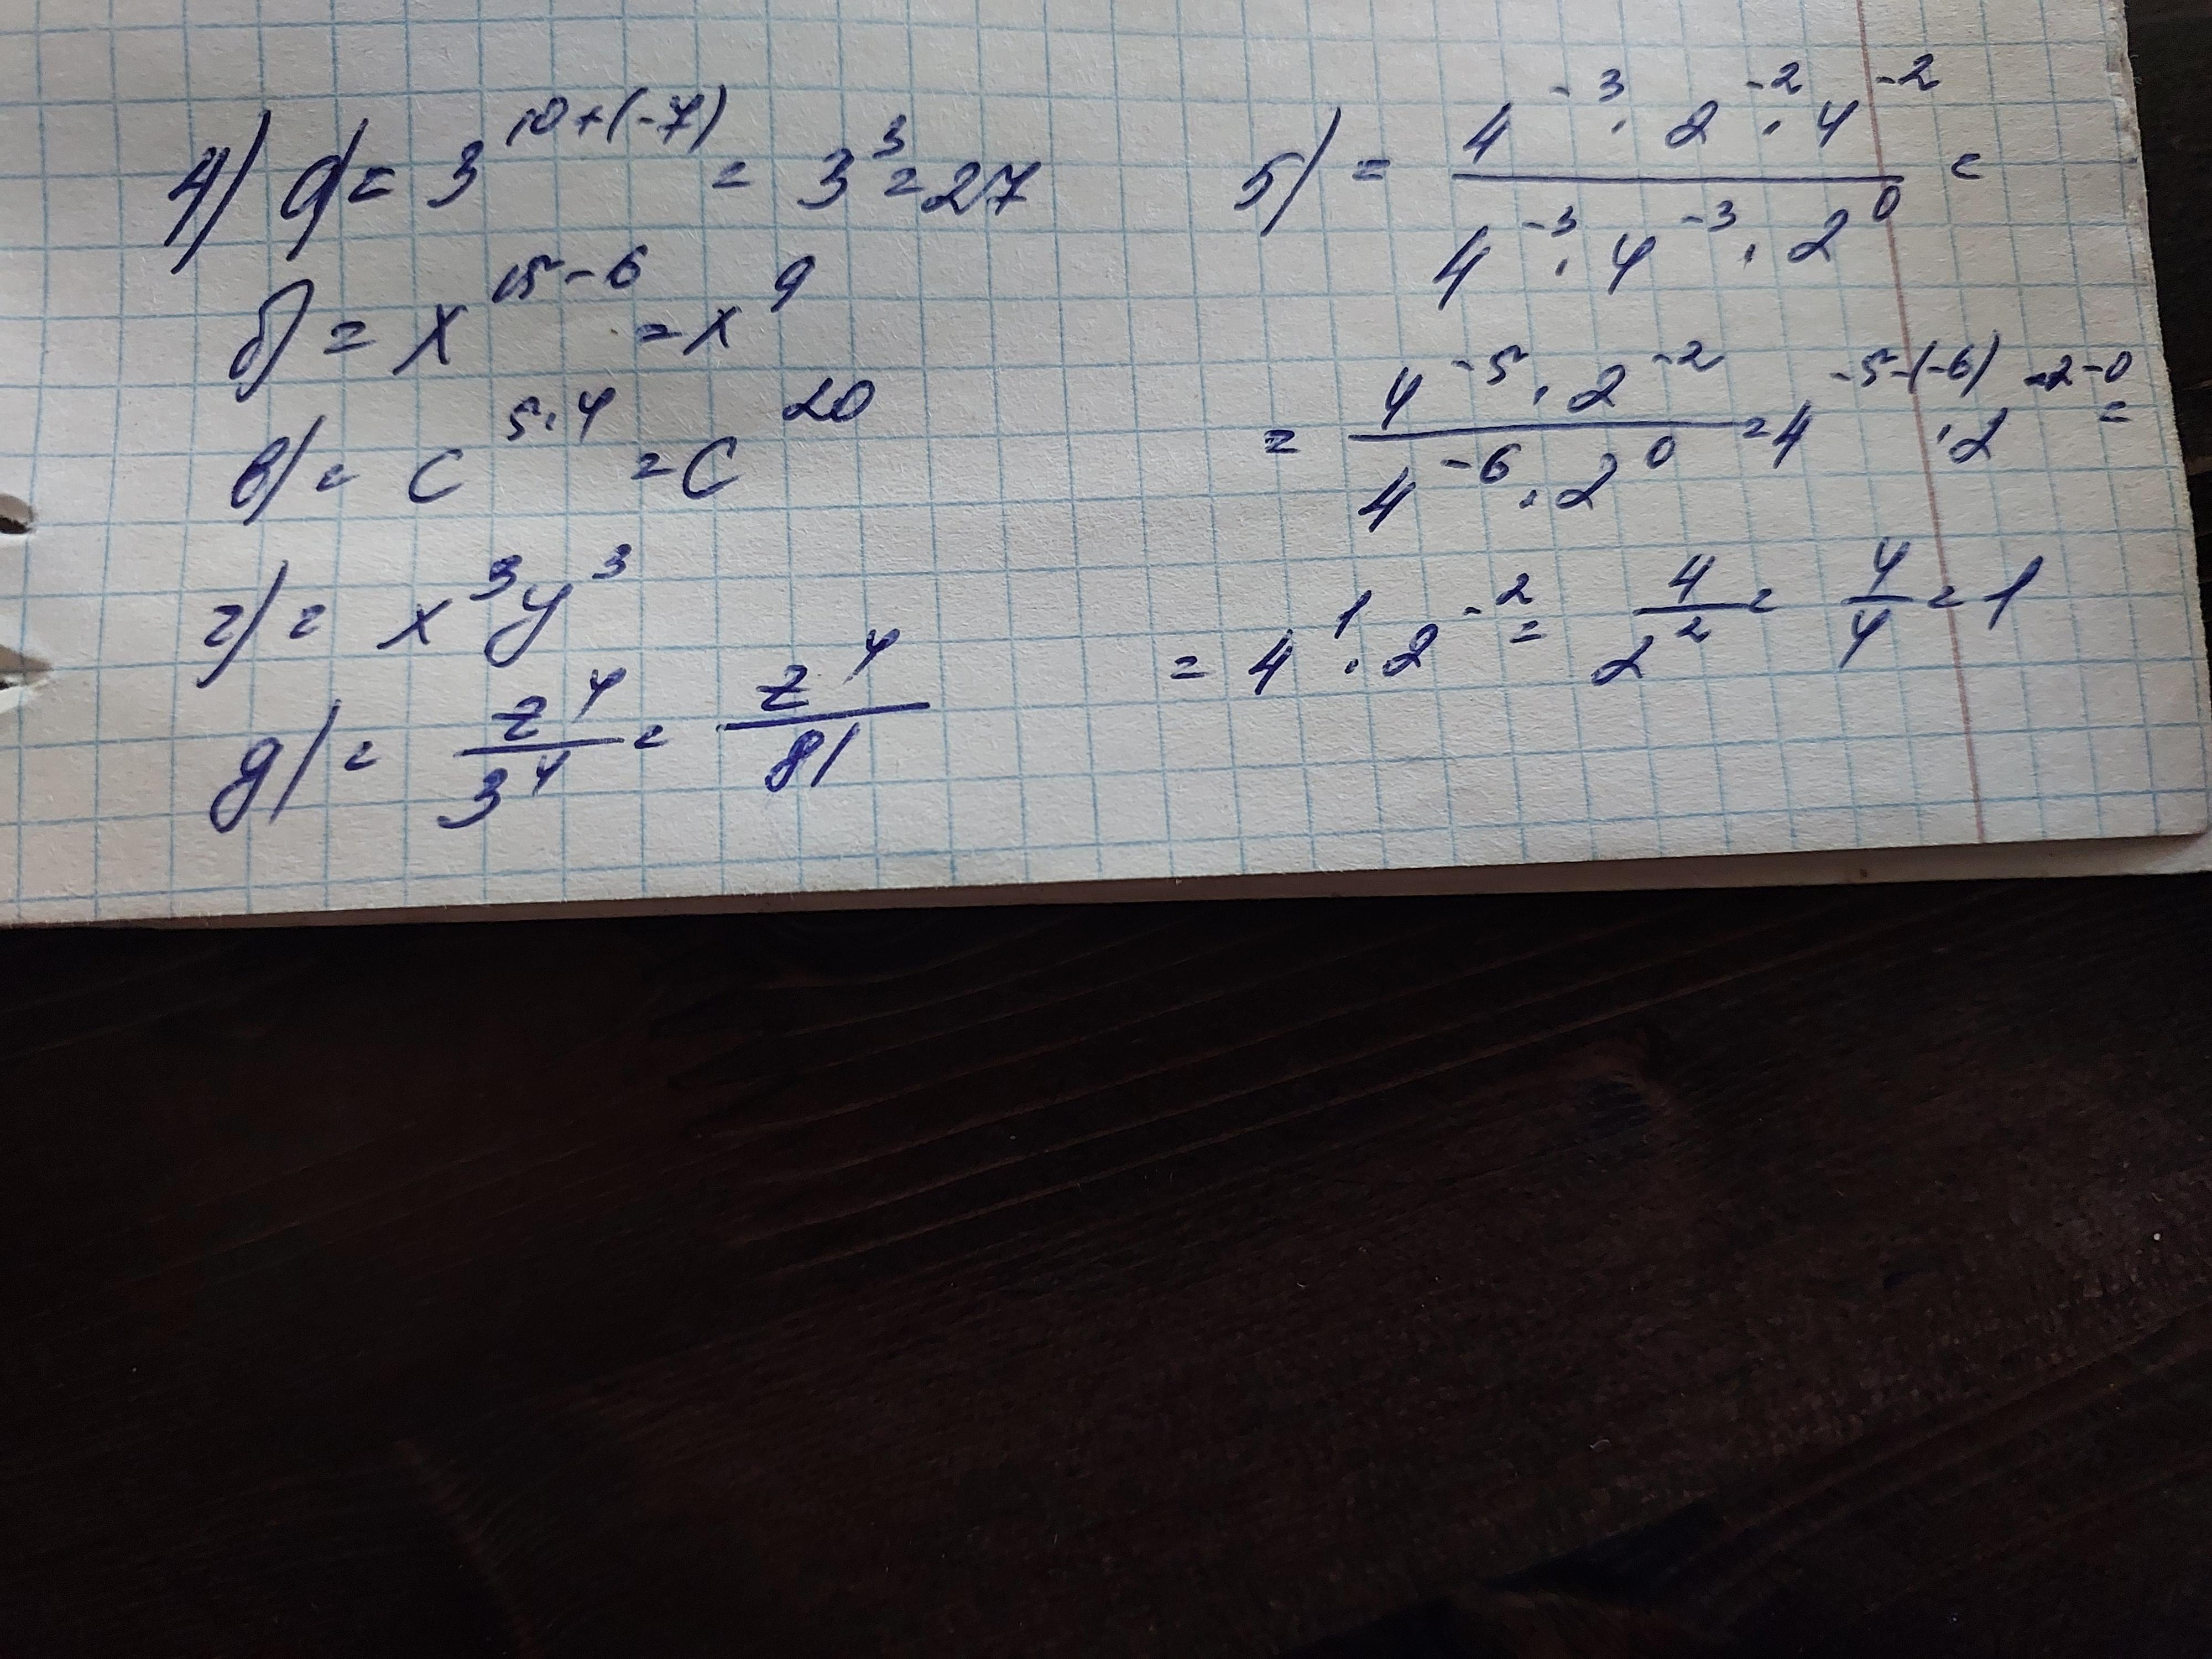 4) а) = 3^{10+(-7)} = 3^3 = 27
б) = x^{15-6} = x^9
в) = c^{5·4} = c^{20}
г) = x^3 y^3
д) = \frac{z^4}{3^4} = \frac{z^4}{81}
5) = \frac{4^{-3} · 2^{-2} · 4^{-2}}{4^{-3} · 4^{-3} · 2^0} =
= \frac{4^{-5} · 2^{-2}}{4^{-6} · 2^0} = 4^{-5-(-6)} · 2^{-2-0} =
= 4^1 · 2^{-2} = \frac{4}{2^2} = \frac{4}{4} = 1